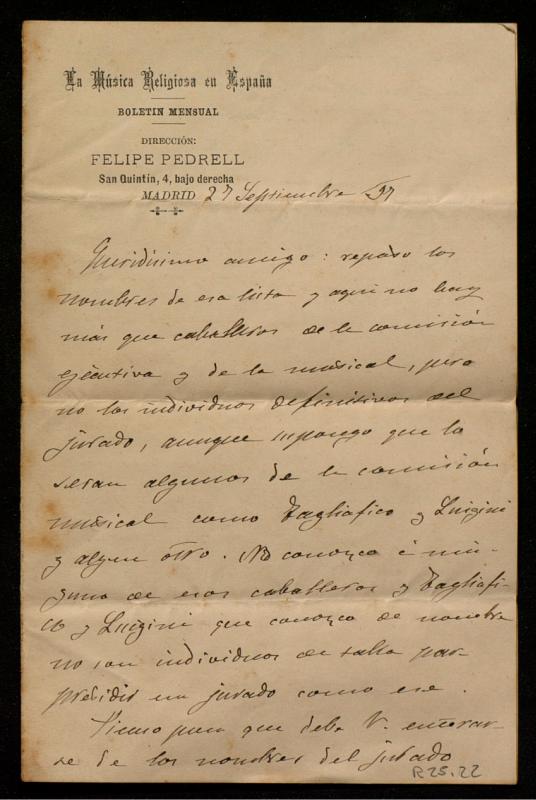 La Música Religiosa en España
BOLETIN MENSUAL
DIRECCIÓN:
FELIPE PEDRELL
San Quintín, 4, bajo derecha
MADRID 27 Septiembre 97
Queridísimo amigo: repaso los
nombres de esa lista y aquí no hay
más que caballeros de la comisión
ejecutiva y de la musical, pero
no los individuos definitivos del
jurado, aunque supongo que lo
seran algunos de la comisión
musical como Tagliafico y Luigini
y algun otro. No conozco á nin-
guno de esos caballeros y Tagliafi-
co y Luigini que conozco de nombre
no son individuos de talla par
presidir un jurado como ese.
pues que debe V. enterar-
se de los nombres del jurado
R25.22